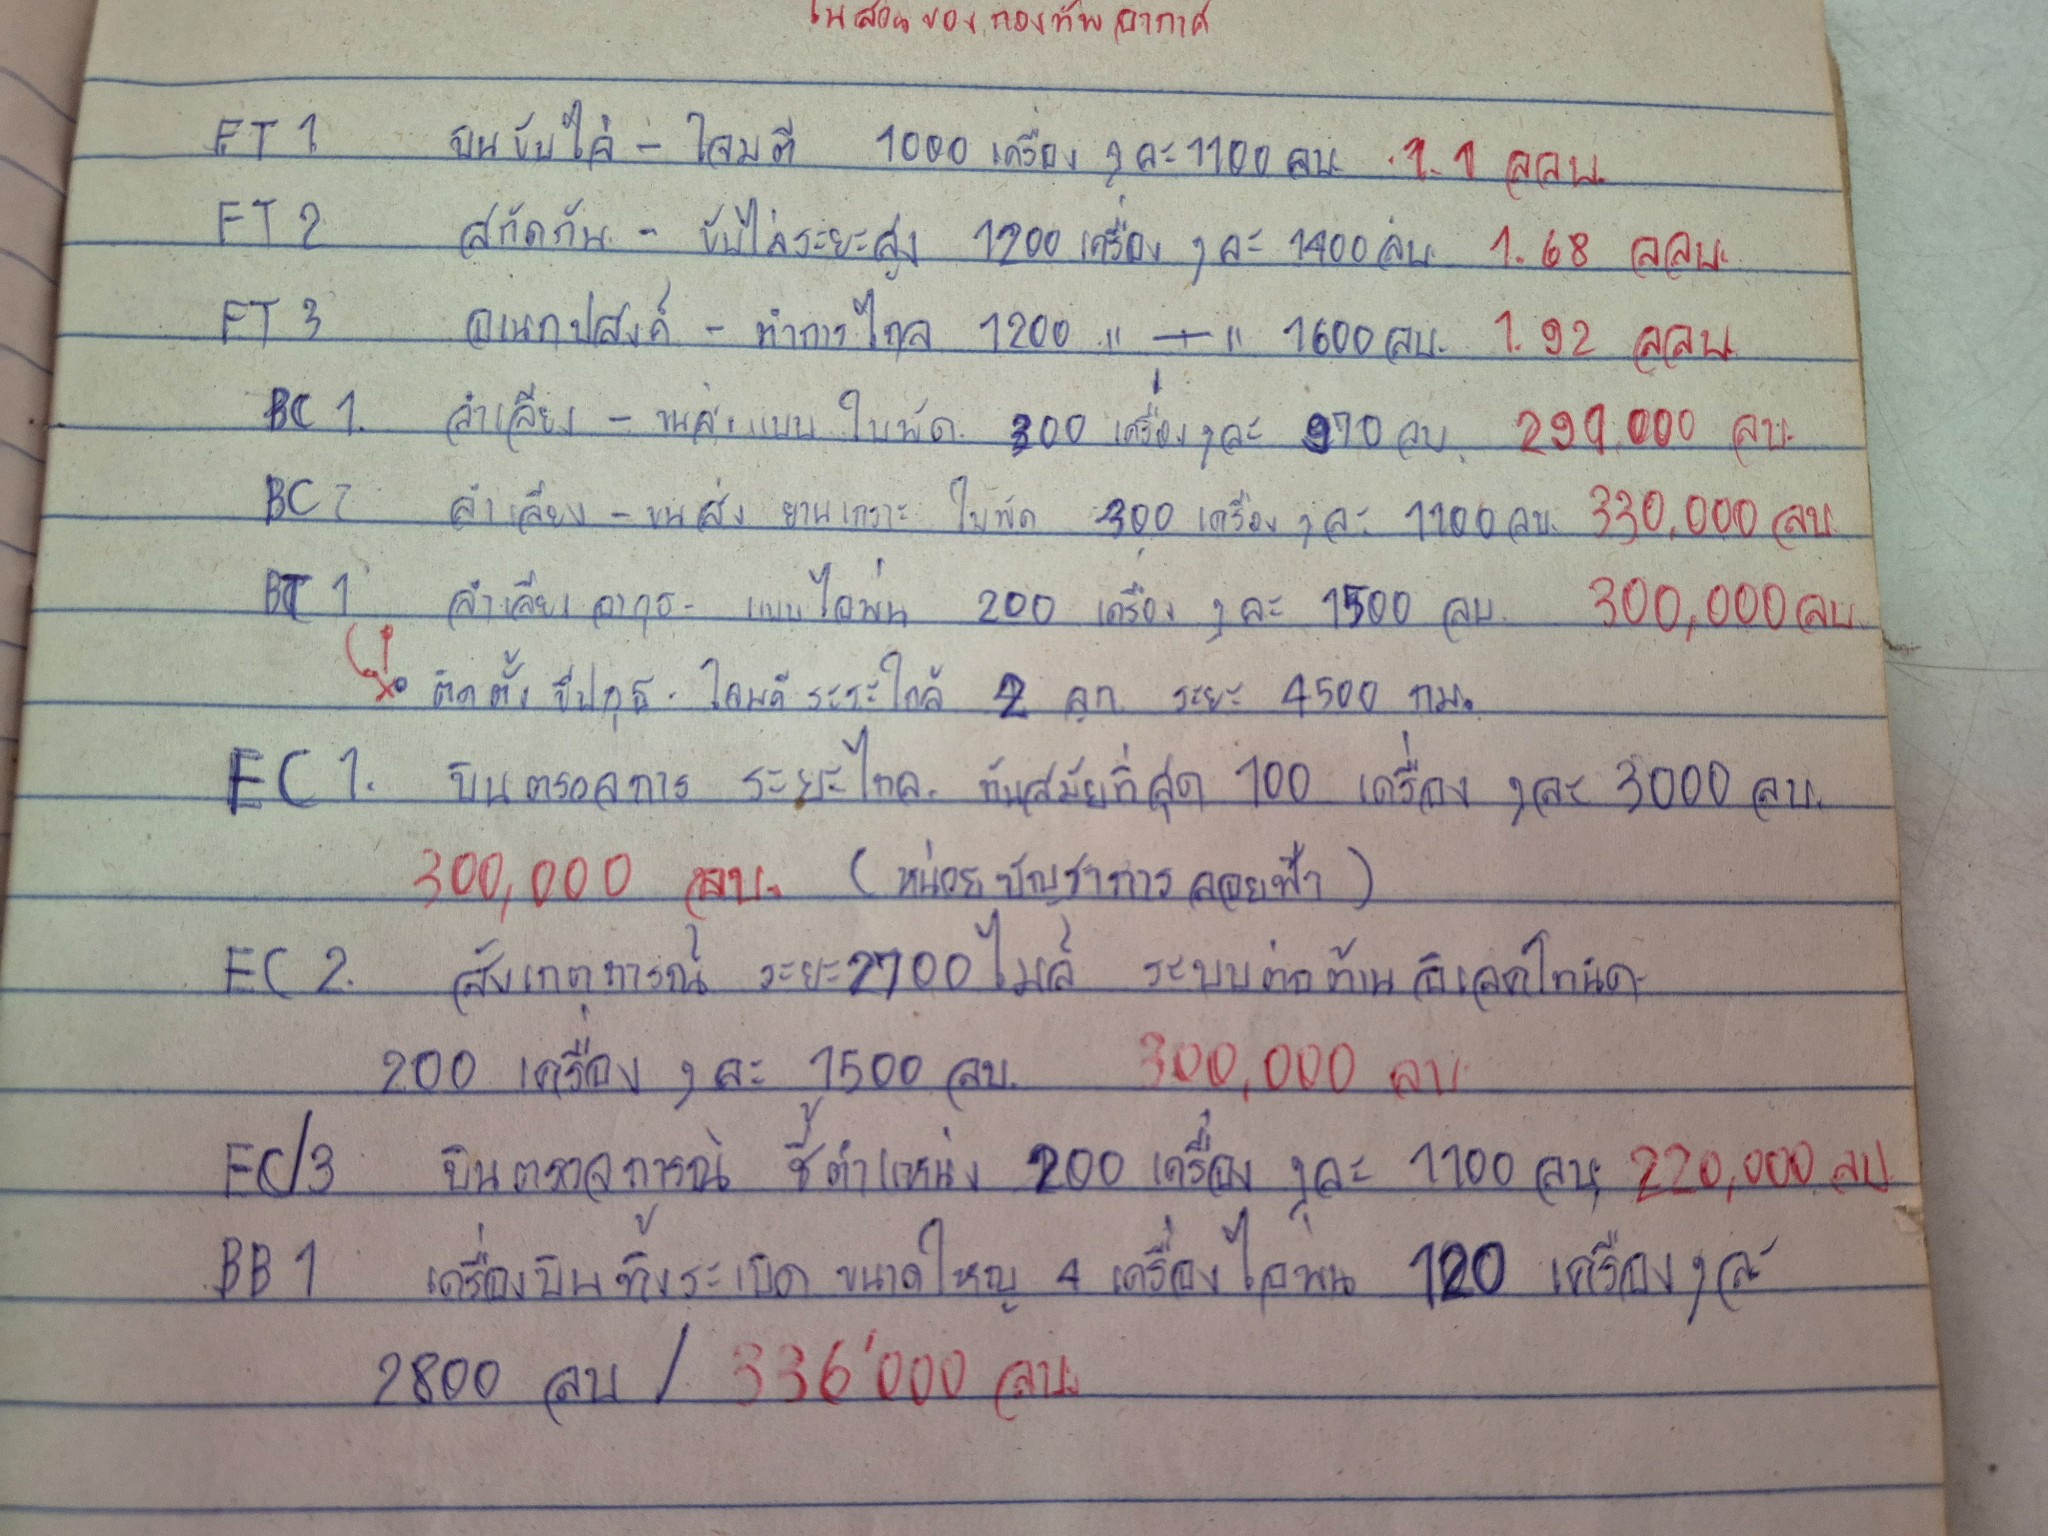 ในส่วนของกองทัพอากาศ
FT 1 บินขับไล่ - โจมตี 1000 เครื่อง ๆ ละ 1100 ลบ. 1.1 ลลบ.
FT 2 สกัดกั้น - ขับไล่ระยะสูง 1200 เครื่อง ๆ ละ 1400 ลบ. 1.68 ลลบ.
FT 3 อเนกปสงค์ - ทำการไกล 1200 " — " 1600 ลบ. 1.92 ลลบ.
BC 1. ลำเลียง - ขนส่งแบบ ใบพัด 300 เครื่อง ๆ ละ 970 ลบ. 291,000 ลบ.
BC 2 ลำเลียง - ขนส่ง ยานเกราะ ใบพัด 300 เครื่อง ๆ ละ 1100 ลบ. 330,000 ลบ.
BT 1 ลำเลียง อาวุธ - แบบไอพ่น 200 เครื่อง ๆ ละ 1500 ลบ. 300,000 ลบ.
ติดตั้ง ขีปวุธ. โจมตีระยะใกล้ 2 ลูก ระยะ 4500 กม.
EC 1. บินตรวจการ ระยะไกล. ทันสมัยที่สุด 100 เครื่อง ๆ ละ 3000 ลบ.
300,000 ลบ. (หน่วยบัญชาการลอยฟ้า)
EC 2. สังเกตุการณ์ ระยะ 2700 ไมล์ ระบบต่อต้าน อิเลคโทนิค
200 เครื่อง ๆ ละ 1500 ลบ. 300,000 ลบ
EC/3 บินตรวจการณ์ ชี้ตำแหน่ง 200 เครื่อง ๆ ละ 1100 ลบ. 220,000 ลบ
BB 1 เครื่องบินทิ้งระเบิด ขนาดใหญ่ 4 เครื่องไอพ่น 120 เครื่อง ๆ ละ
2800 ลบ / 336'000 ลบ.